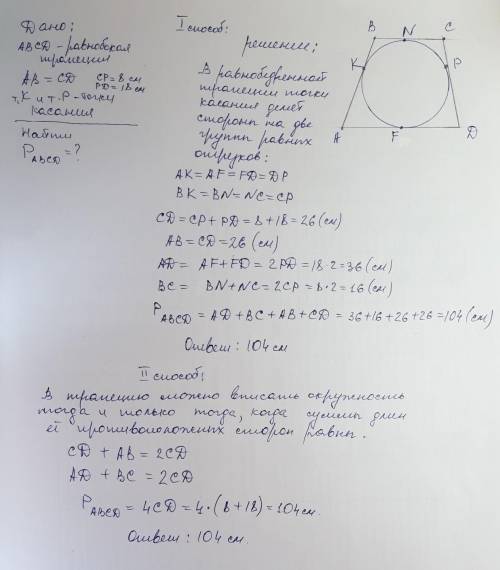 Дано:
ABCD - равнобокая
трапеция
AB = CD CP = 8 см
PD = 18 см
т. K и т. P - точки
касания
Найти
P ABCD = ?
I способ:
решение;
В равнобедренной
трапеции точки
касания делят
стороны на две
группы равных
отрезков:
AK = AF = FD = DP
BK = BN = NC = CP
CD = CP + PD = 8 + 18 = 26 (см)
AB = CD = 26 (см)
AD = AF + FD = 2PD = 18·2 = 36 (см)
BC = BN + NC = 2CP = 8·2 = 16 (см)
P ABCD = AD + BC + AB + CD = 36 + 16 + 26 + 26 = 104 (см)
Ответ: 104 см
B N C
K P
A F D
II способ:
В трапецию можно вписать окружность
тогда и только тогда, когда суммы длин
её противоположных сторон равны.
CD + AB = 2CD
AD + BC = 2CD
P ABCD = 4CD = 4·(8 + 18) = 104 см.
Ответ: 104 см.